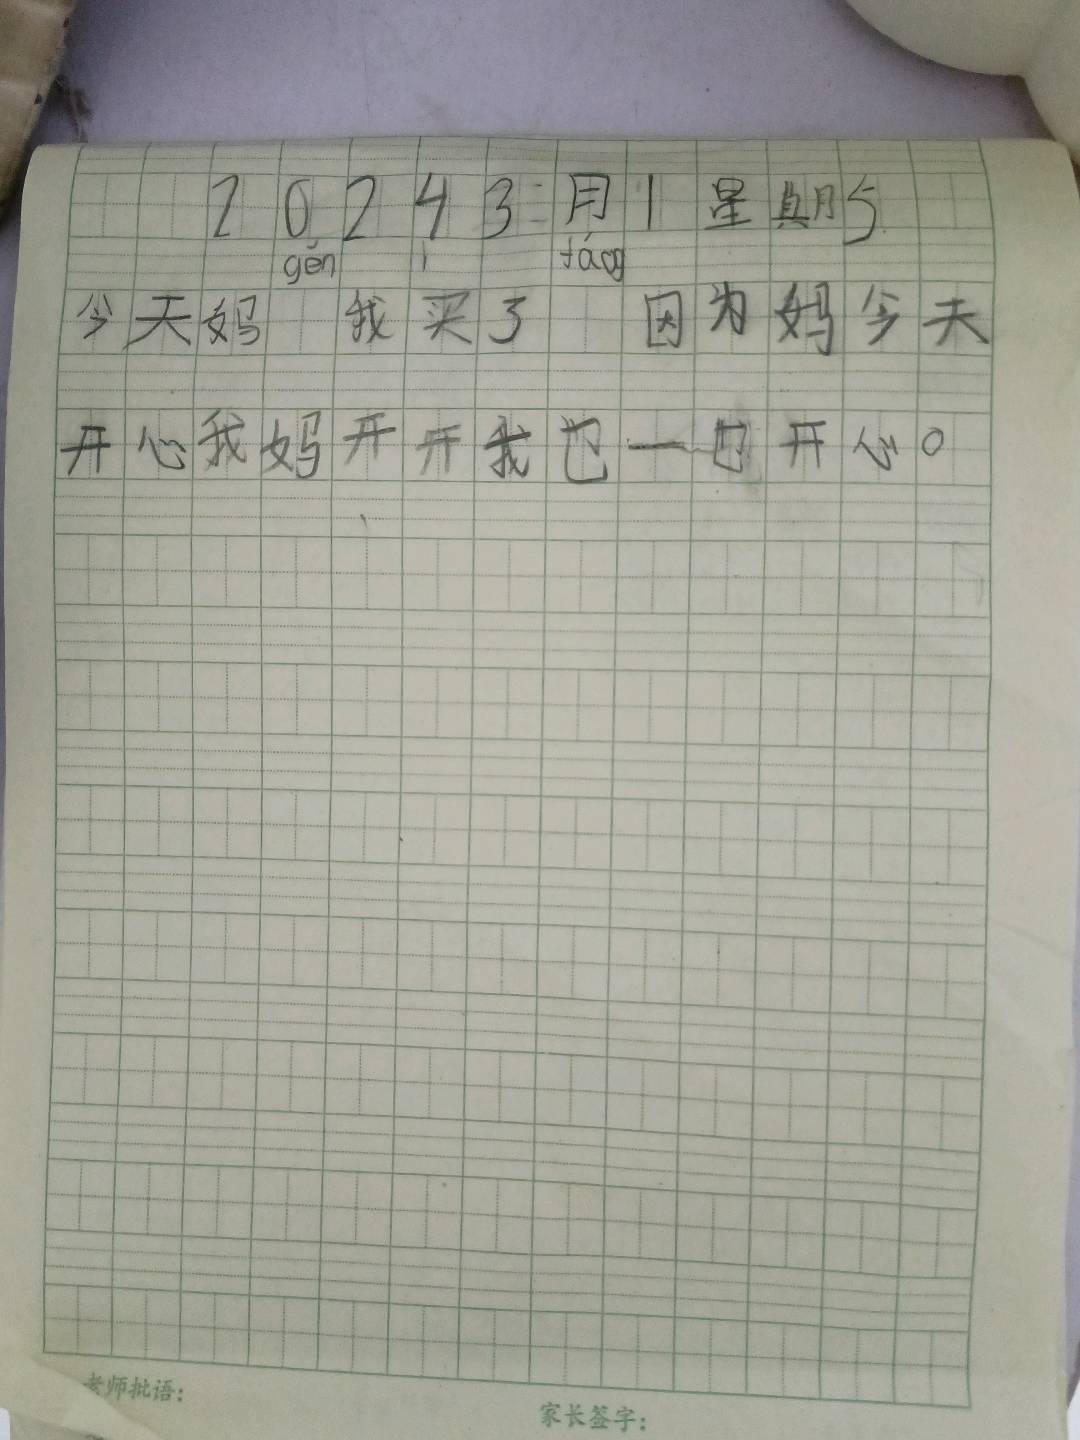 20243月1星期5
gěn táng
今天妈 我买了 因为妈今天
开心我妈开开我也一也开心。
老师批语:
家长签字: